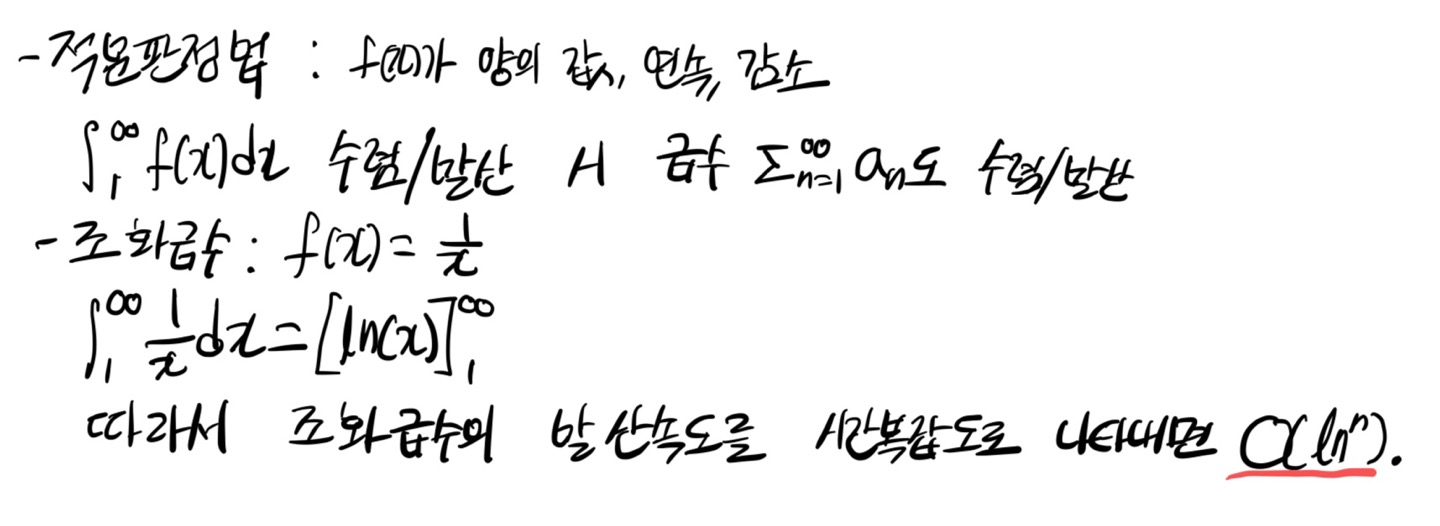 - 적분판정법 : f(x)가 양의 값, 연속, 감소
∫₁^∞ f(x)dx 수렴/발산 시 급수 Σₙ₌₁^∞ aₙ도 수렴/발산
- 조화급수 : f(x) = 1/x
∫₁^∞ 1/x dx = [ln(x)]₁^∞
따라서 조화급수의 발산속도를 시간복잡도로 나타내면 O(lnⁿ).